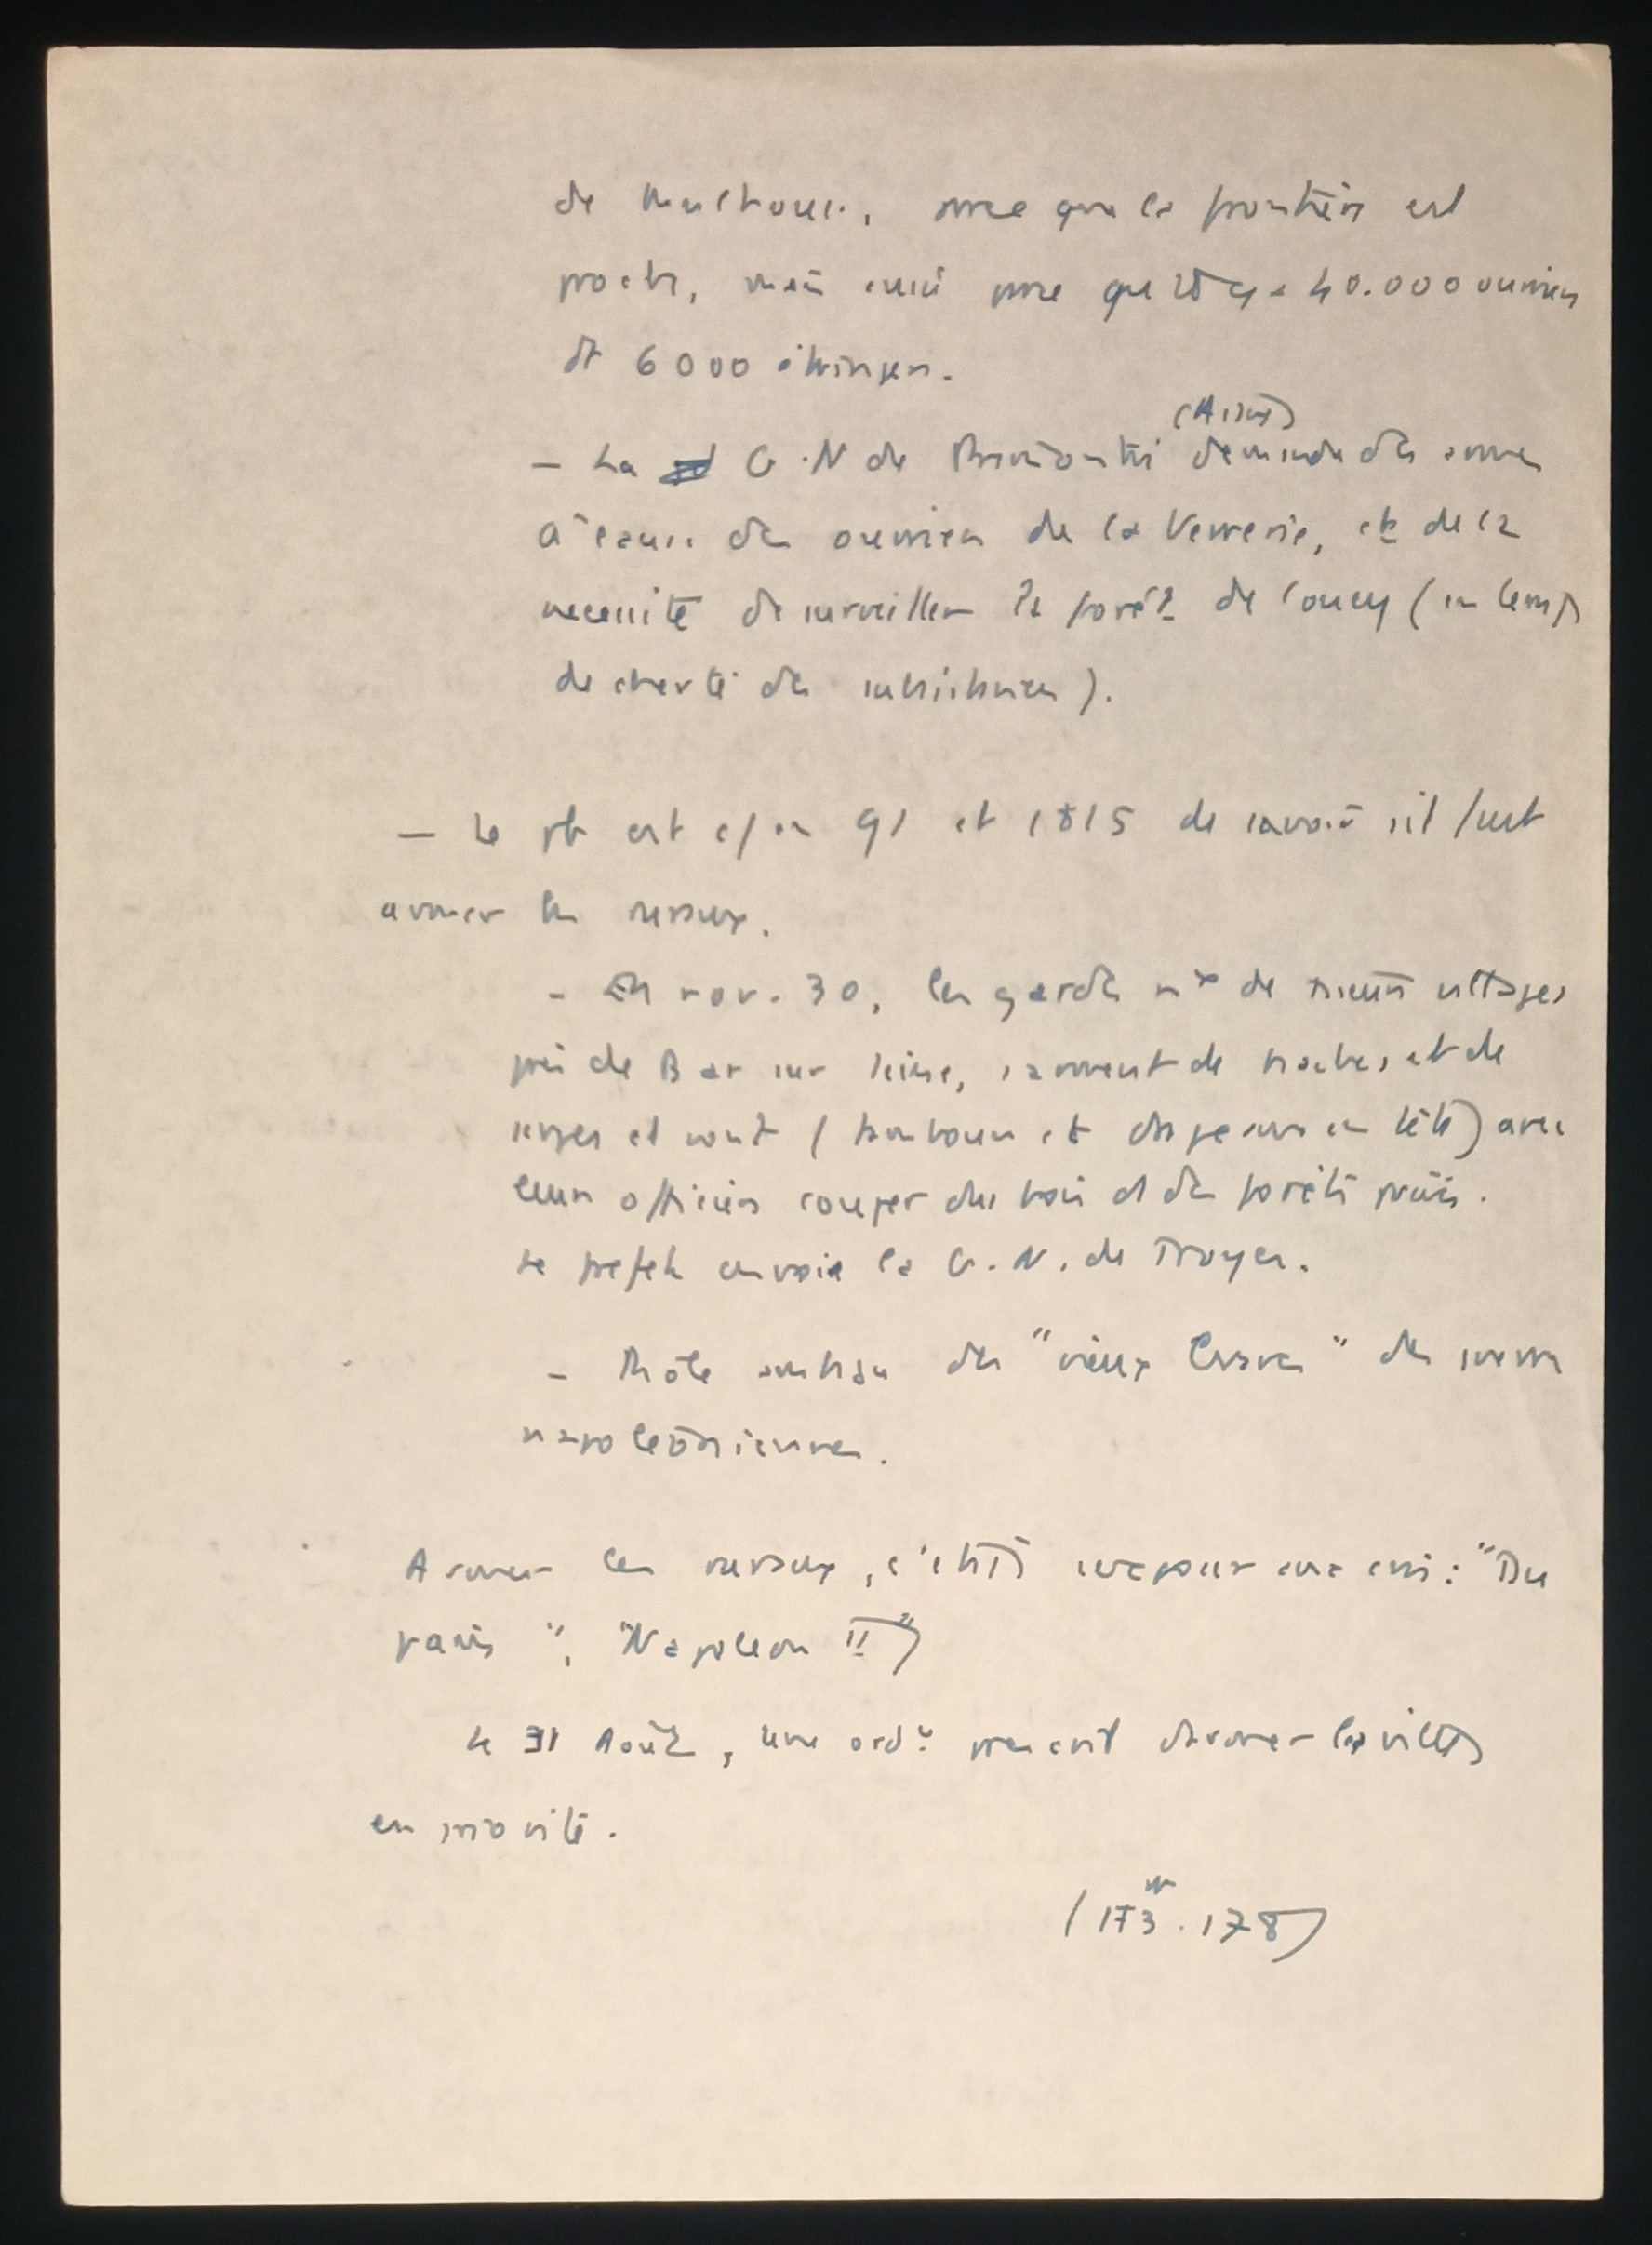 de Mulhouse, parce que la frontière est
proche, mais aussi parce que il y a 40.000 ouvriers
dt 6000 étrangers.
(Aisne)
– La G.N de Prémontré demande des armes
à cause des ouvriers de la Verrerie, et de la
necessité de surveiller la forêt de Coucy (en temps
de cherté des subsistances).
– Le pb est c/ en 91 et 1815 de savoir s'il faut
armer les ruraux.
– En nov. 30, les gardes nx de villages
près de Bar sur Seine, s'arment de haches et de
serpes et vont (tambours et en tête) avec
leurs officiers couper des bois ds des forêts privées.
Le prefet envoie la G.N. de Troyes.
– Rôle des "vieux braves" des guerres
napoleoniennes.
Armer les ruraux, c'était s'exposer aux cris : "Du
pain", "Napoleon II")
Le 31 Août, une ordce prescrit d'armer les villes
en priorité.
(173. 178)